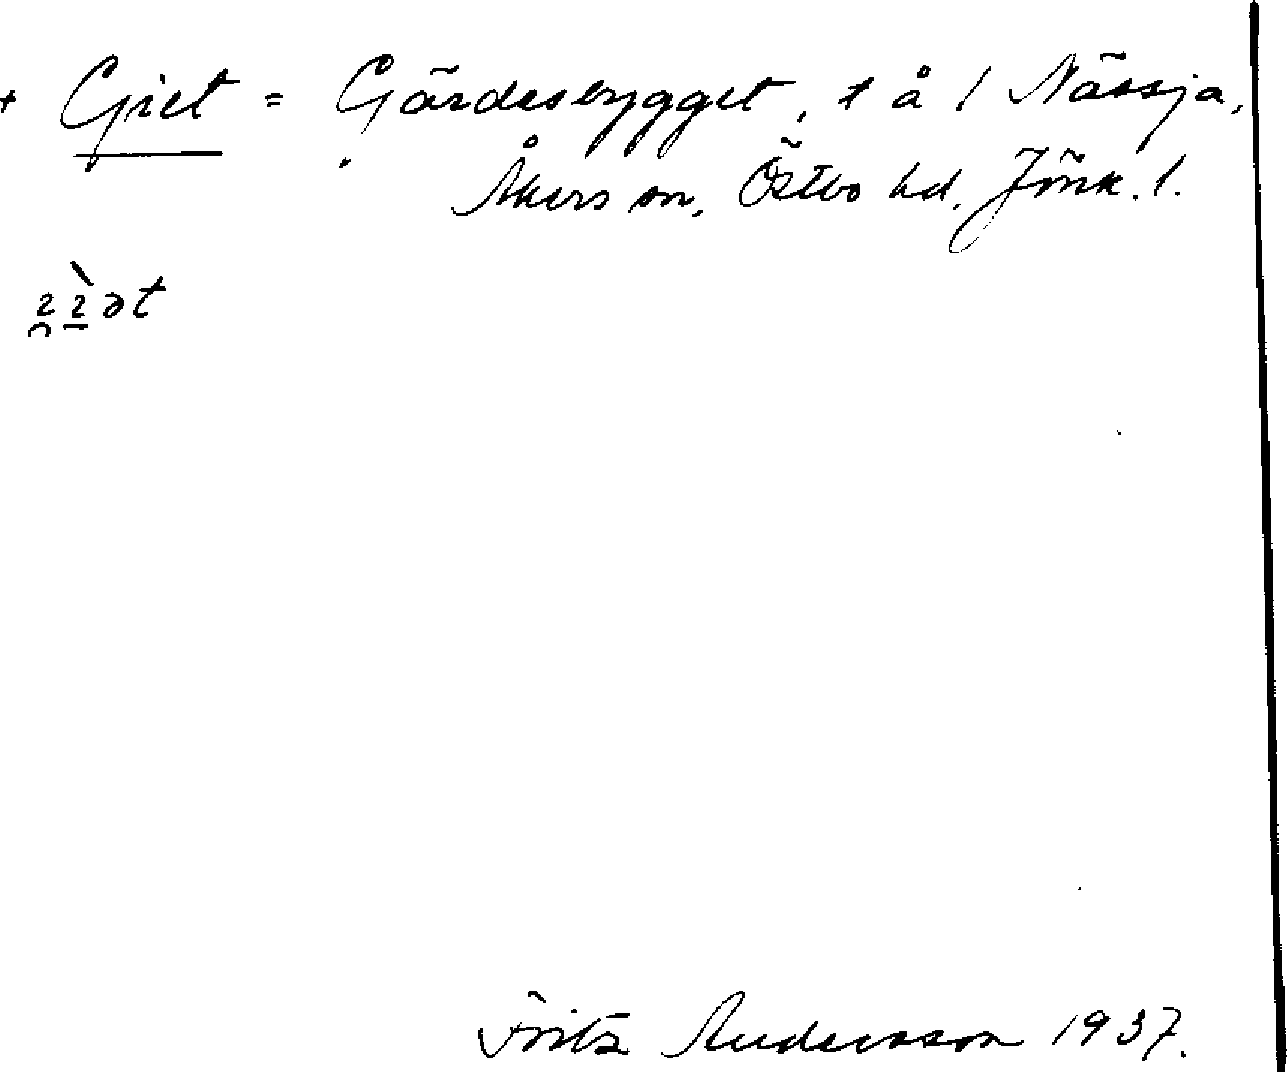 + Giet = Gärdesbygget, t å 1 Nässja,
Åkers sn, Östbo hd, Jönk. l.
Fritz Andersson 1937.